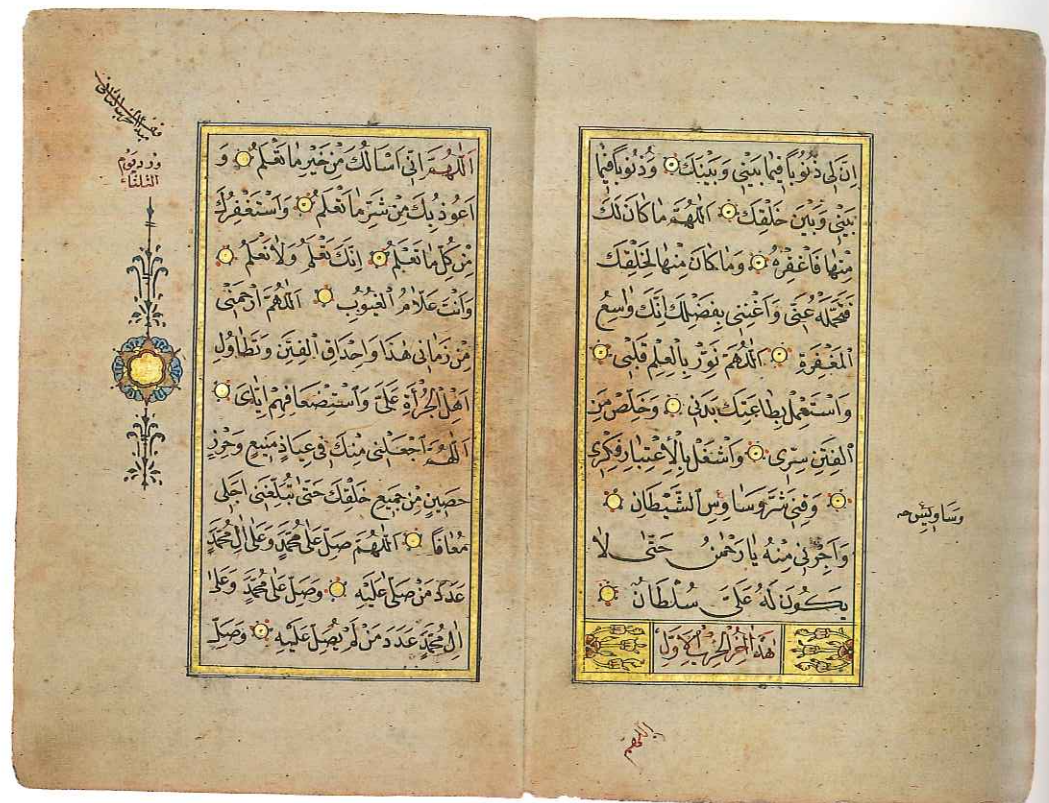 اِنَّ لِى ذُنُوبًا فِيمَا بَيْنِى وَبَيْنَكَ وَذُنُوبًا فِيمَا
بَيْنِى وَبَيْنَ خَلْقِكَ اَللّٰهُمَّ مَا كَانَ لَكَ
مِنْهَا فَاغْفِرْهُ وَمَا كَانَ مِنْهَا لِخَلْقِكَ
فَتَحَمَّلْهُ عَنِّى وَاَغْنِنِى بِفَضْلِكَ اِنَّكَ وَاسِعُ
الْمَغْفِرَةِ اَللّٰهُمَّ نَوِّرْ بِالْعِلْمِ قَلْبِى
وَاسْتَعْمِلْ بِطَاعَتِكَ بَدَنِى وَخَلِّصْ مِنَ
الْفِتَنِ سِرِّى وَاشْغَلْ بِالْاِعْتِبَارِ فِكْرِى
وَقِنِى شَرَّ وَسَاوِسِ الشَّيْطَانِ
وَاَجِرْنِى مِنْهُ يَا رَحْمٰنُ حَتّٰى لَا
يَكُونَ لَهُ عَلَىَّ سُلْطَانٌ
هٰذَا اٰخِرُ الْحِزْبِ الْاَوَّلِ
وساويس
اللهم
ورد يوم
الثلثاء
اَللّٰهُمَّ اِنِّى اَسْاَلُكَ مِنْ خَيْرِ مَا تَعْلَمُ وَ
اَعُوذُ بِكَ مِنْ شَرِّ مَا تَعْلَمُ وَاَسْتَغْفِرُكَ
مِنْ كُلِّ مَا تَعْلَمُ اِنَّكَ تَعْلَمُ وَلَا نَعْلَمُ
وَاَنْتَ عَلَّامُ الْغُيُوبِ اَللّٰهُمَّ ارْحَمْنِى
مِنْ زَمَانِى هٰذَا وَاِحْدَاقِ الْفِتَنِ وَتَطَاوُلِ
اَهْلِ الْجُرْاَةِ عَلَىَّ وَاسْتِضْعَافِهِمْ اِيَّاىَ
اَللّٰهُمَّ اجْعَلْنِى مِنْكَ فِى عِيَاذٍ مَنِيعٍ وَحِرْزٍ
حَصِينٍ مِنْ جَمِيعِ خَلْقِكَ حَتّٰى تُبَلِّغَنِى اَجَلِى
مُعَافًا اَللّٰهُمَّ صَلِّ عَلٰى مُحَمَّدٍ وَعَلٰى اٰلِ مُحَمَّدٍ
عَدَدَ مَنْ صَلّٰى عَلَيْهِ وَصَلِّ عَلٰى مُحَمَّدٍ وَعَلٰى
اٰلِ مُحَمَّدٍ عَدَدَ مَنْ لَمْ يُصَلِّ عَلَيْهِ وَصَلِّ